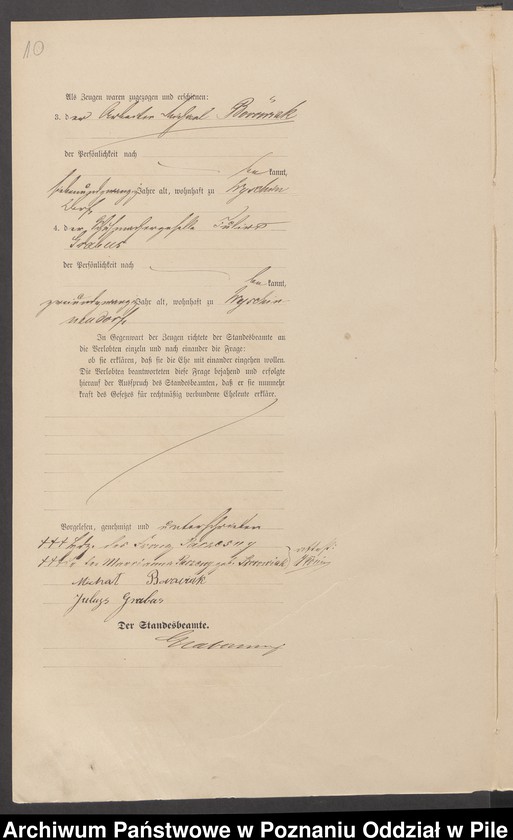 10
Als Zeugen waren zugezogen und erschienen:
3. der Arbeiter Michael Borowiak
der Persönlichkeit nach
be kannt,
siebenundzwanzig Jahre alt, wohnhaft zu Wyschin
Dorf
4. der Schuhmachergeselle Julius
Grabus
der Persönlichkeit nach
be kannt,
zweiundzwanzig Jahr alt, wohnhaft zu Wyschin
neudorf
In Gegenwart der Zeugen richtete der Standesbeamte an
die Verlobten einzeln und nach einander die Frage:
ob sie erklären, daß sie die Ehe mit einander eingehen wollen.
Die Verlobten beantworteten diese Frage bejahend und erfolgte
hierauf der Ausspruch des Standesbeamten, daß er sie nunmehr
kraft des Gesetzes für rechtmäßig verbundene Eheleute erkläre.
Vorgelesen, genehmigt und unterschrieben
+++ des
+++ der Marrianna geb. Borowiak
Michał Borowiak
Grabus
Der Standesbeamte.
Archiwum Państwowe w Poznaniu Oddział w Pile